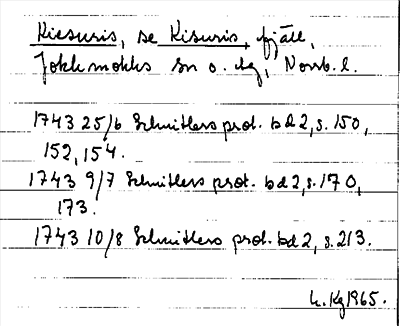 Kiesuris, se Kisuris, fjäll,
Jokkmokks sn o. lg, Norrb. l.
1743 25/6 Schnitlers prot. bd 2, s. 150,
152, 154.
1743 9/7 Schnitlers prot. bd 2, s. 170,
173.
1743 10/8 Schnitlers prot. bd 2, s. 213.
h. Kg 1965.